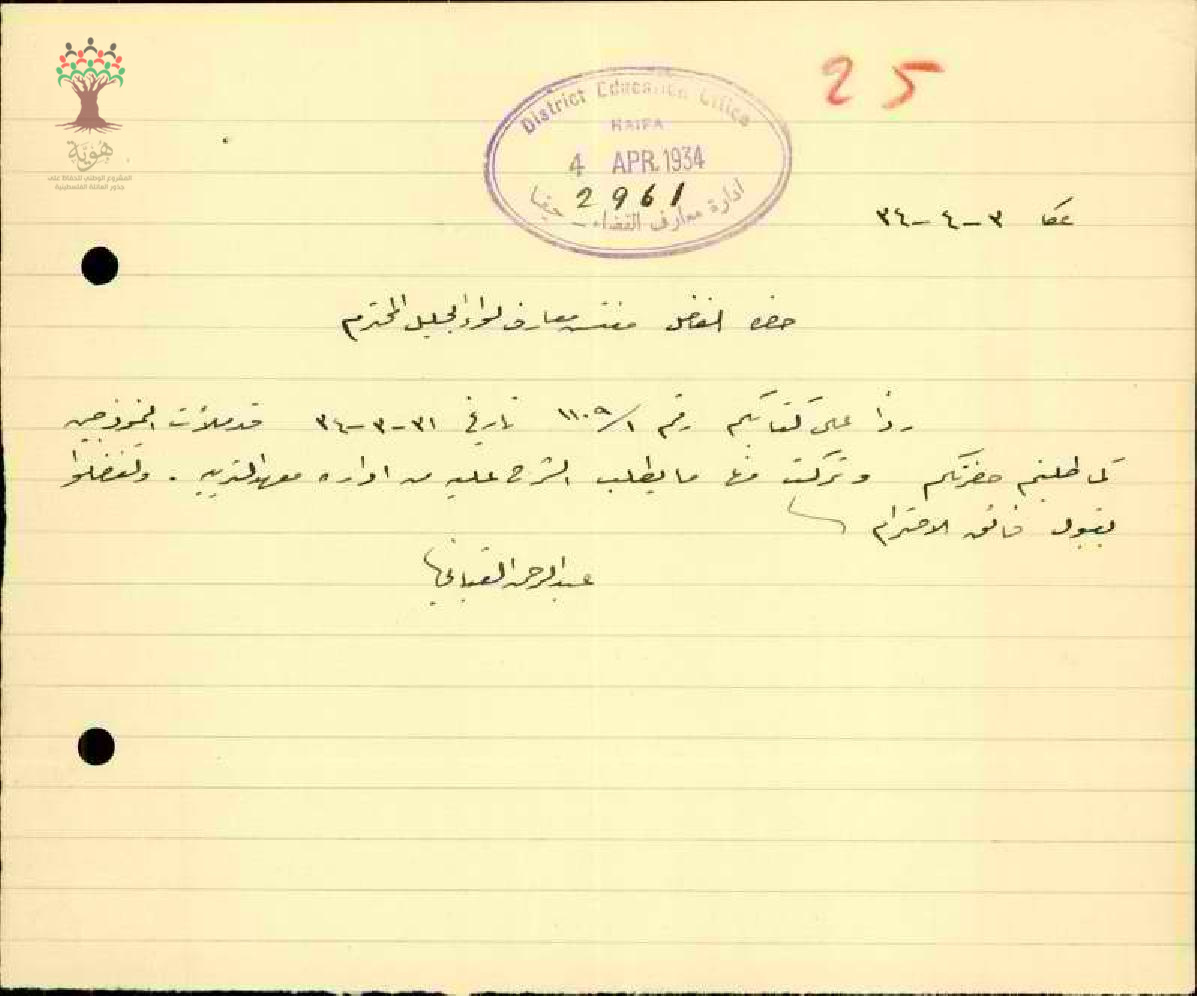 هُوِيَّة
المشروع الوطني للحفاظ على
جذور العائلة الفلسطينية
25
District Education Office
HAIFA
4 APR. 1934
2961
ادارة معارف القضاء - حيفا
عكا ٣-٤-٣٤
حضرة الفاضل مفتش معارف لواء الجليل المحترم
رداً على كتابكم رقم ١١٠٩/١ تاريخ ٣١-٣-٣٤ قد ملأت النموذجين
كما طلبتم حضرتكم وتركت منها ما يطلب الشرح عليه من ادارة معهد التربية . وتفضلوا
بقبول فائق الاحترام
عبد الرحمن القباني